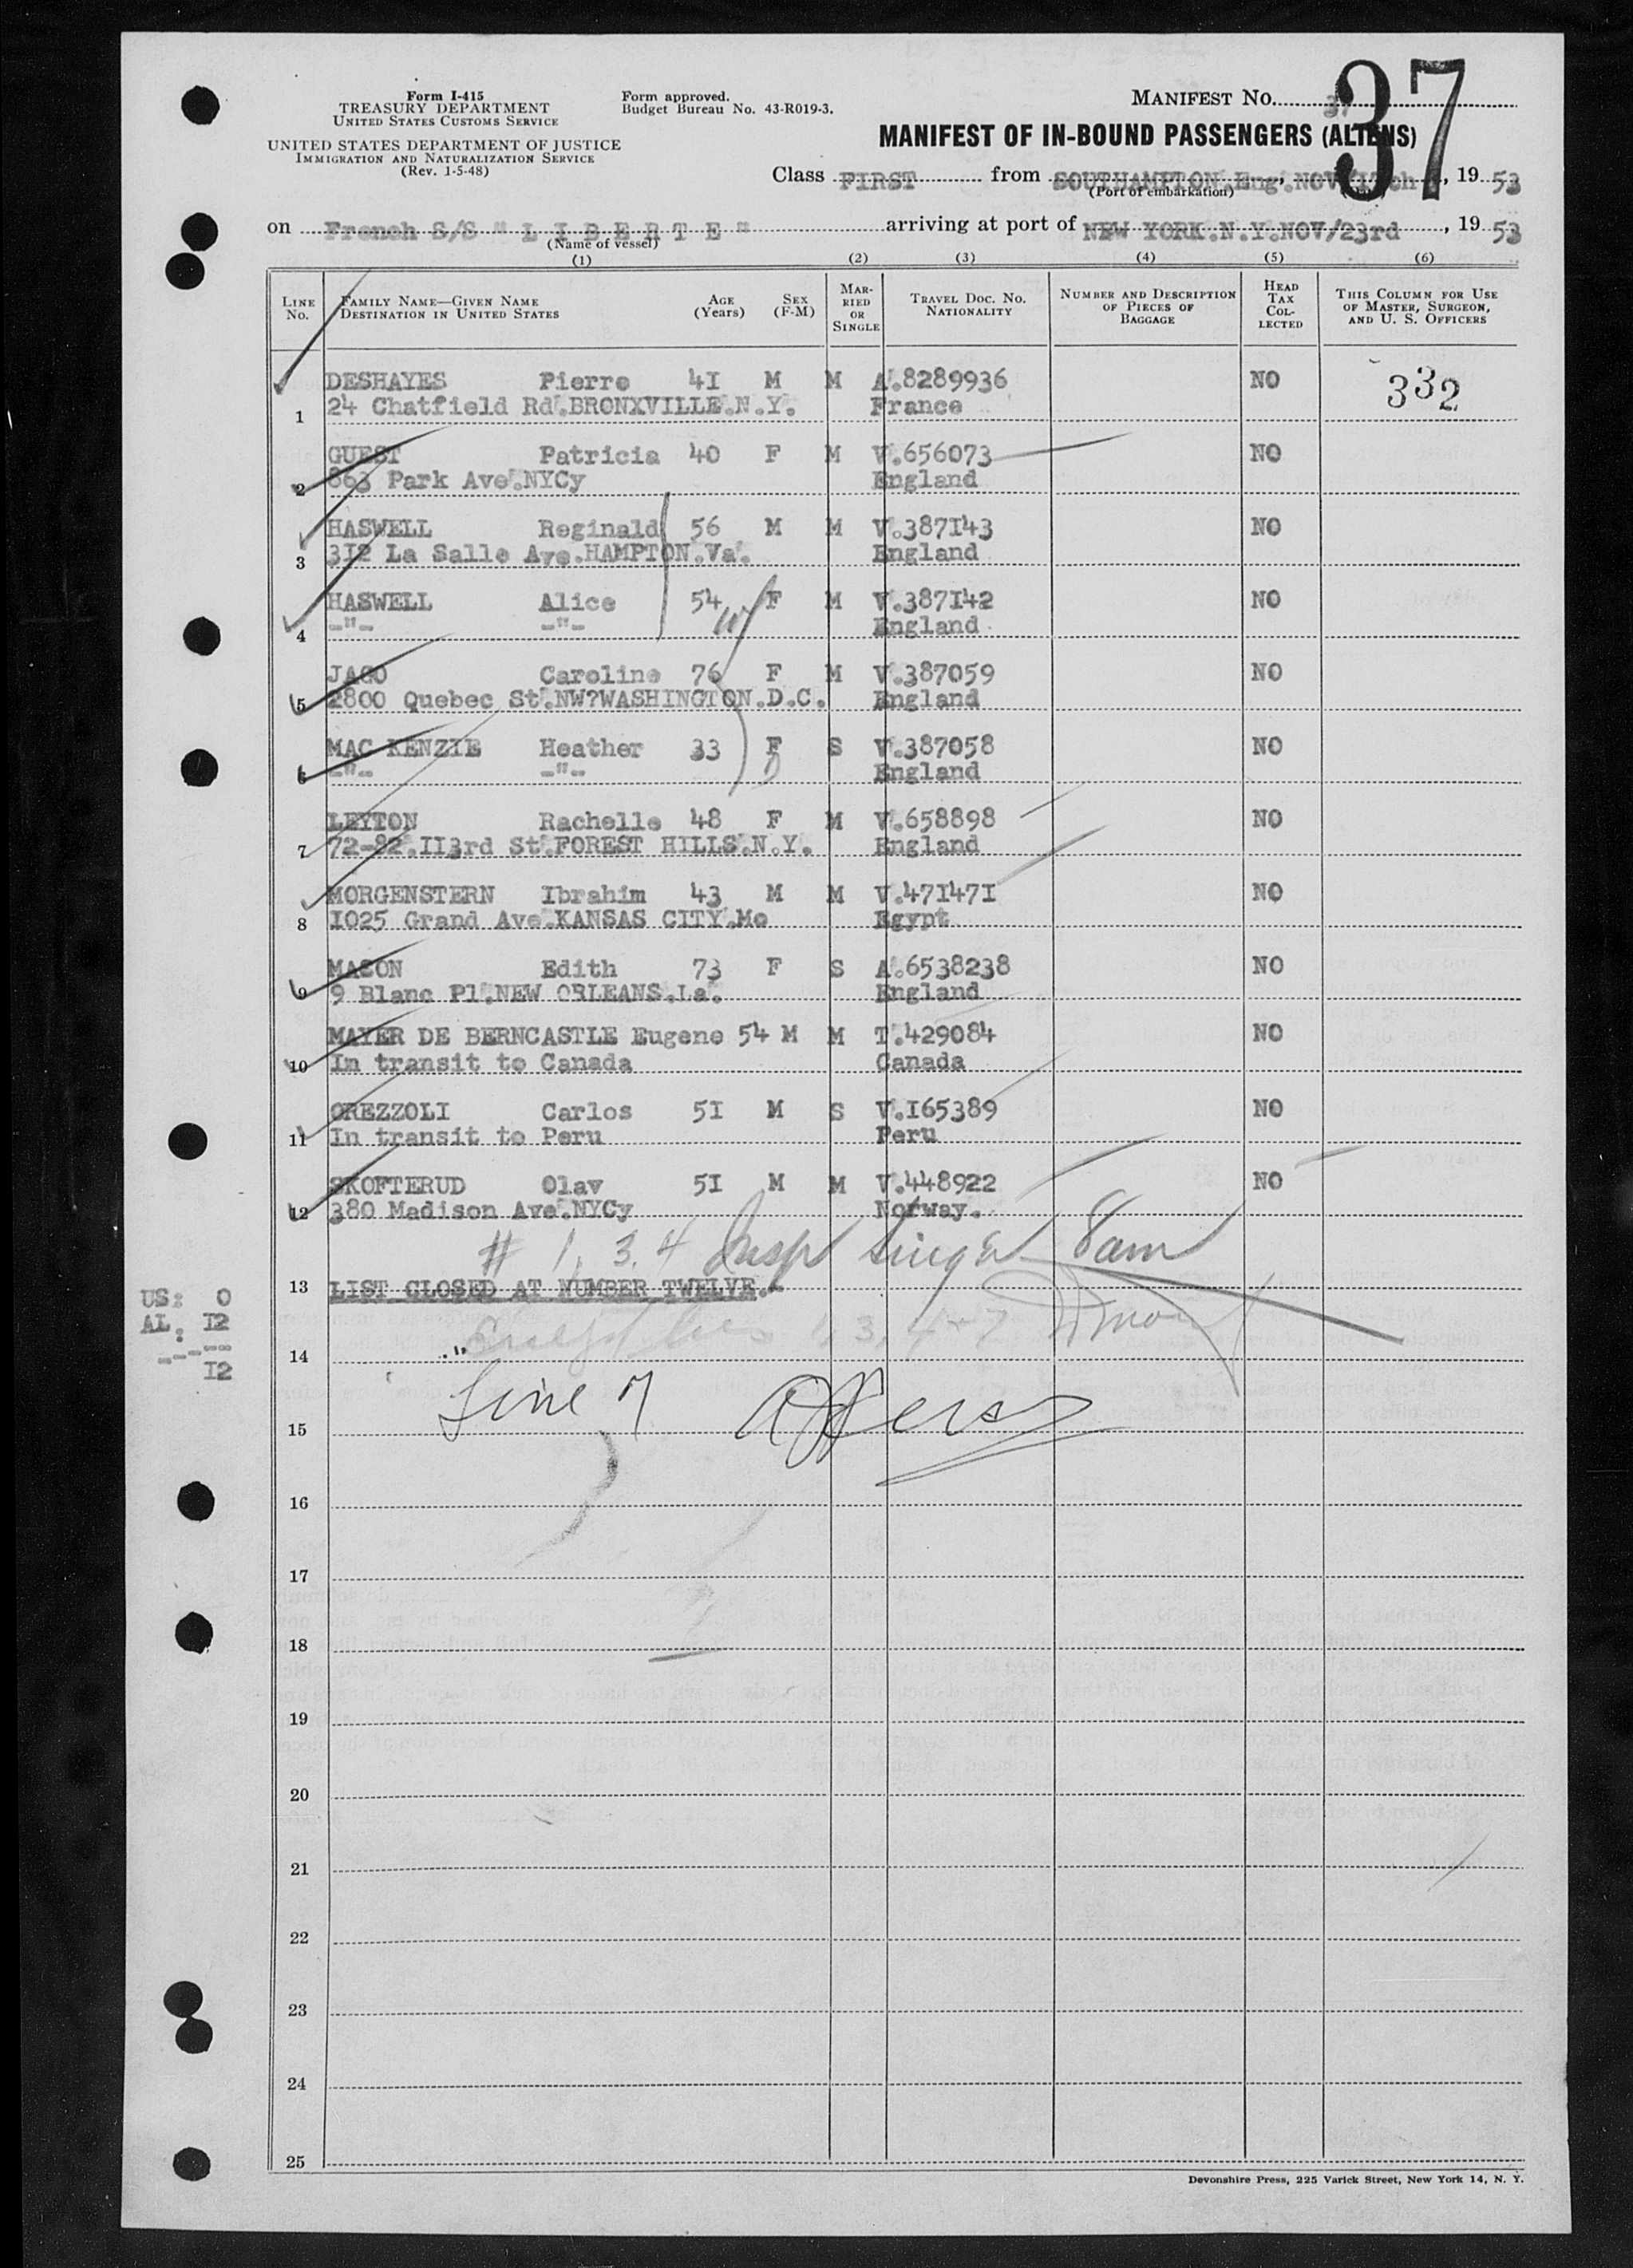 Form I-415
TREASURY DEPARTMENT
UNITED STATES CUSTOMS SERVICE
UNITED STATES DEPARTMENT OF JUSTICE
IMMIGRATION AND NATURALIZATION SERVICE
(Rev. 1-5-48)
Form approved.
Budget Bureau No. 43-R019-3.
MANIFEST No. 37
MANIFEST OF IN-BOUND PASSENGERS (ALIENS)
Class FIRST from SOUTHAMPTON.Eng. NOV 17th, 1953
(Port of embarkation)
on French S/S " L I B E R T E " arriving at port of NEW YORK.N.Y.NOV/23rd, 1953
(Name of vessel)
(1) (2) (3) (4) (5) (6)
LINE No. FAMILY NAME—GIVEN NAME DESTINATION IN UNITED STATES AGE (Years) SEX (F-M) MARRIED OR SINGLE TRAVEL DOC. NO. NATIONALITY NUMBER AND DESCRIPTION OF PIECES OF BAGGAGE HEAD TAX COLLECTED THIS COLUMN FOR USE OF MASTER, SURGEON, AND U. S. OFFICERS
DESHAYES Pierre 41 M M A.8289936 NO 332
1 24 Chatfield Rd.BRONXVILLE.N.Y. France
GUEST Patricia 40 F M V.656073 NO
2 863 Park Ave.NYCy England
HASWELL Reginald 56 M M V.387143 NO
3 312 La Salle Ave.HAMPTON.Va. England
HASWELL Alice 54 F M V.387142 NO
4 -"- -"- England
JAGO Caroline 76 F M V.387059 NO
5 2800 Quebec St.NW?WASHINGTON.D.C. England
MAC KENZIE Heather 33 F S V.387058 NO
6 -"- -"- England
LEYTON Rachelle 48 F M V.658898 NO
7 72-82.II3rd St.FOREST HILLS.N.Y. England
MORGENSTERN Ibrahim 43 M M V.471471 NO
8 1025 Grand Ave.KANSAS CITY.Mo Egypt
MASON Edith 73 F S A.6538238 NO
9 9 Blanc Pl.NEW ORLEANS.La. England
MAYER DE BERNCASTLE Eugene 54 M M T.429084 NO
10 In transit to Canada Canada
OREZZOLI Carlos 51 M S V.165389 NO
11 In transit to Peru Peru
SKOFTERUD Olav 51 M M V.448922 NO
12 380 Madison Ave.NYCy Norway.
# 1, 3, 4 Insp 8am
13 LIST CLOSED AT NUMBER TWELVE.-
US: 0
AL: 12
-----
12
1, 3, 4 + 7
14
Line 7
15
16
17
18
19
20
21
22
23
24
25
Devonshire Press, 225 Varick Street, New York 14, N. Y.